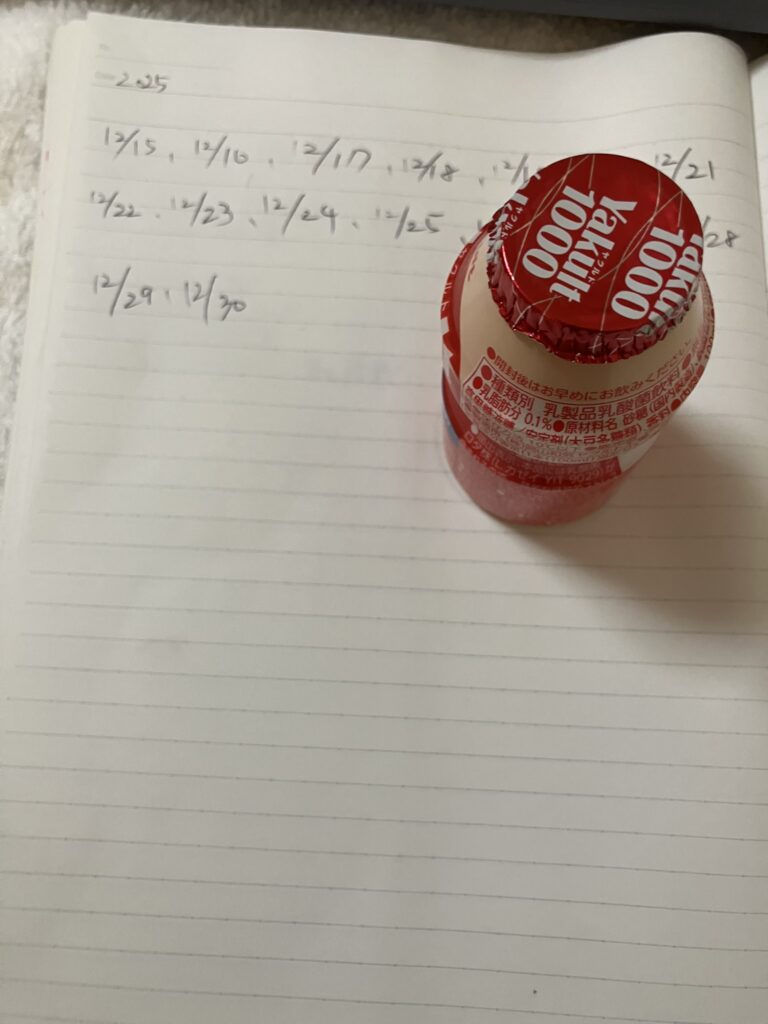 2025
12/15、12/16、12/17、12/18、12/1 12/21
12/22、12/23、12/24、12/25、 /28
12/29、12/30
Yakult
ヤクルト
1000
Yakult
ヤクルト
1000
●開封後はお早めにお飲みください
●種類別 乳製品乳酸菌飲料
●乳脂肪分 0.1%●原材料名 砂糖(国内製造)
安定剤(大豆多糖類)